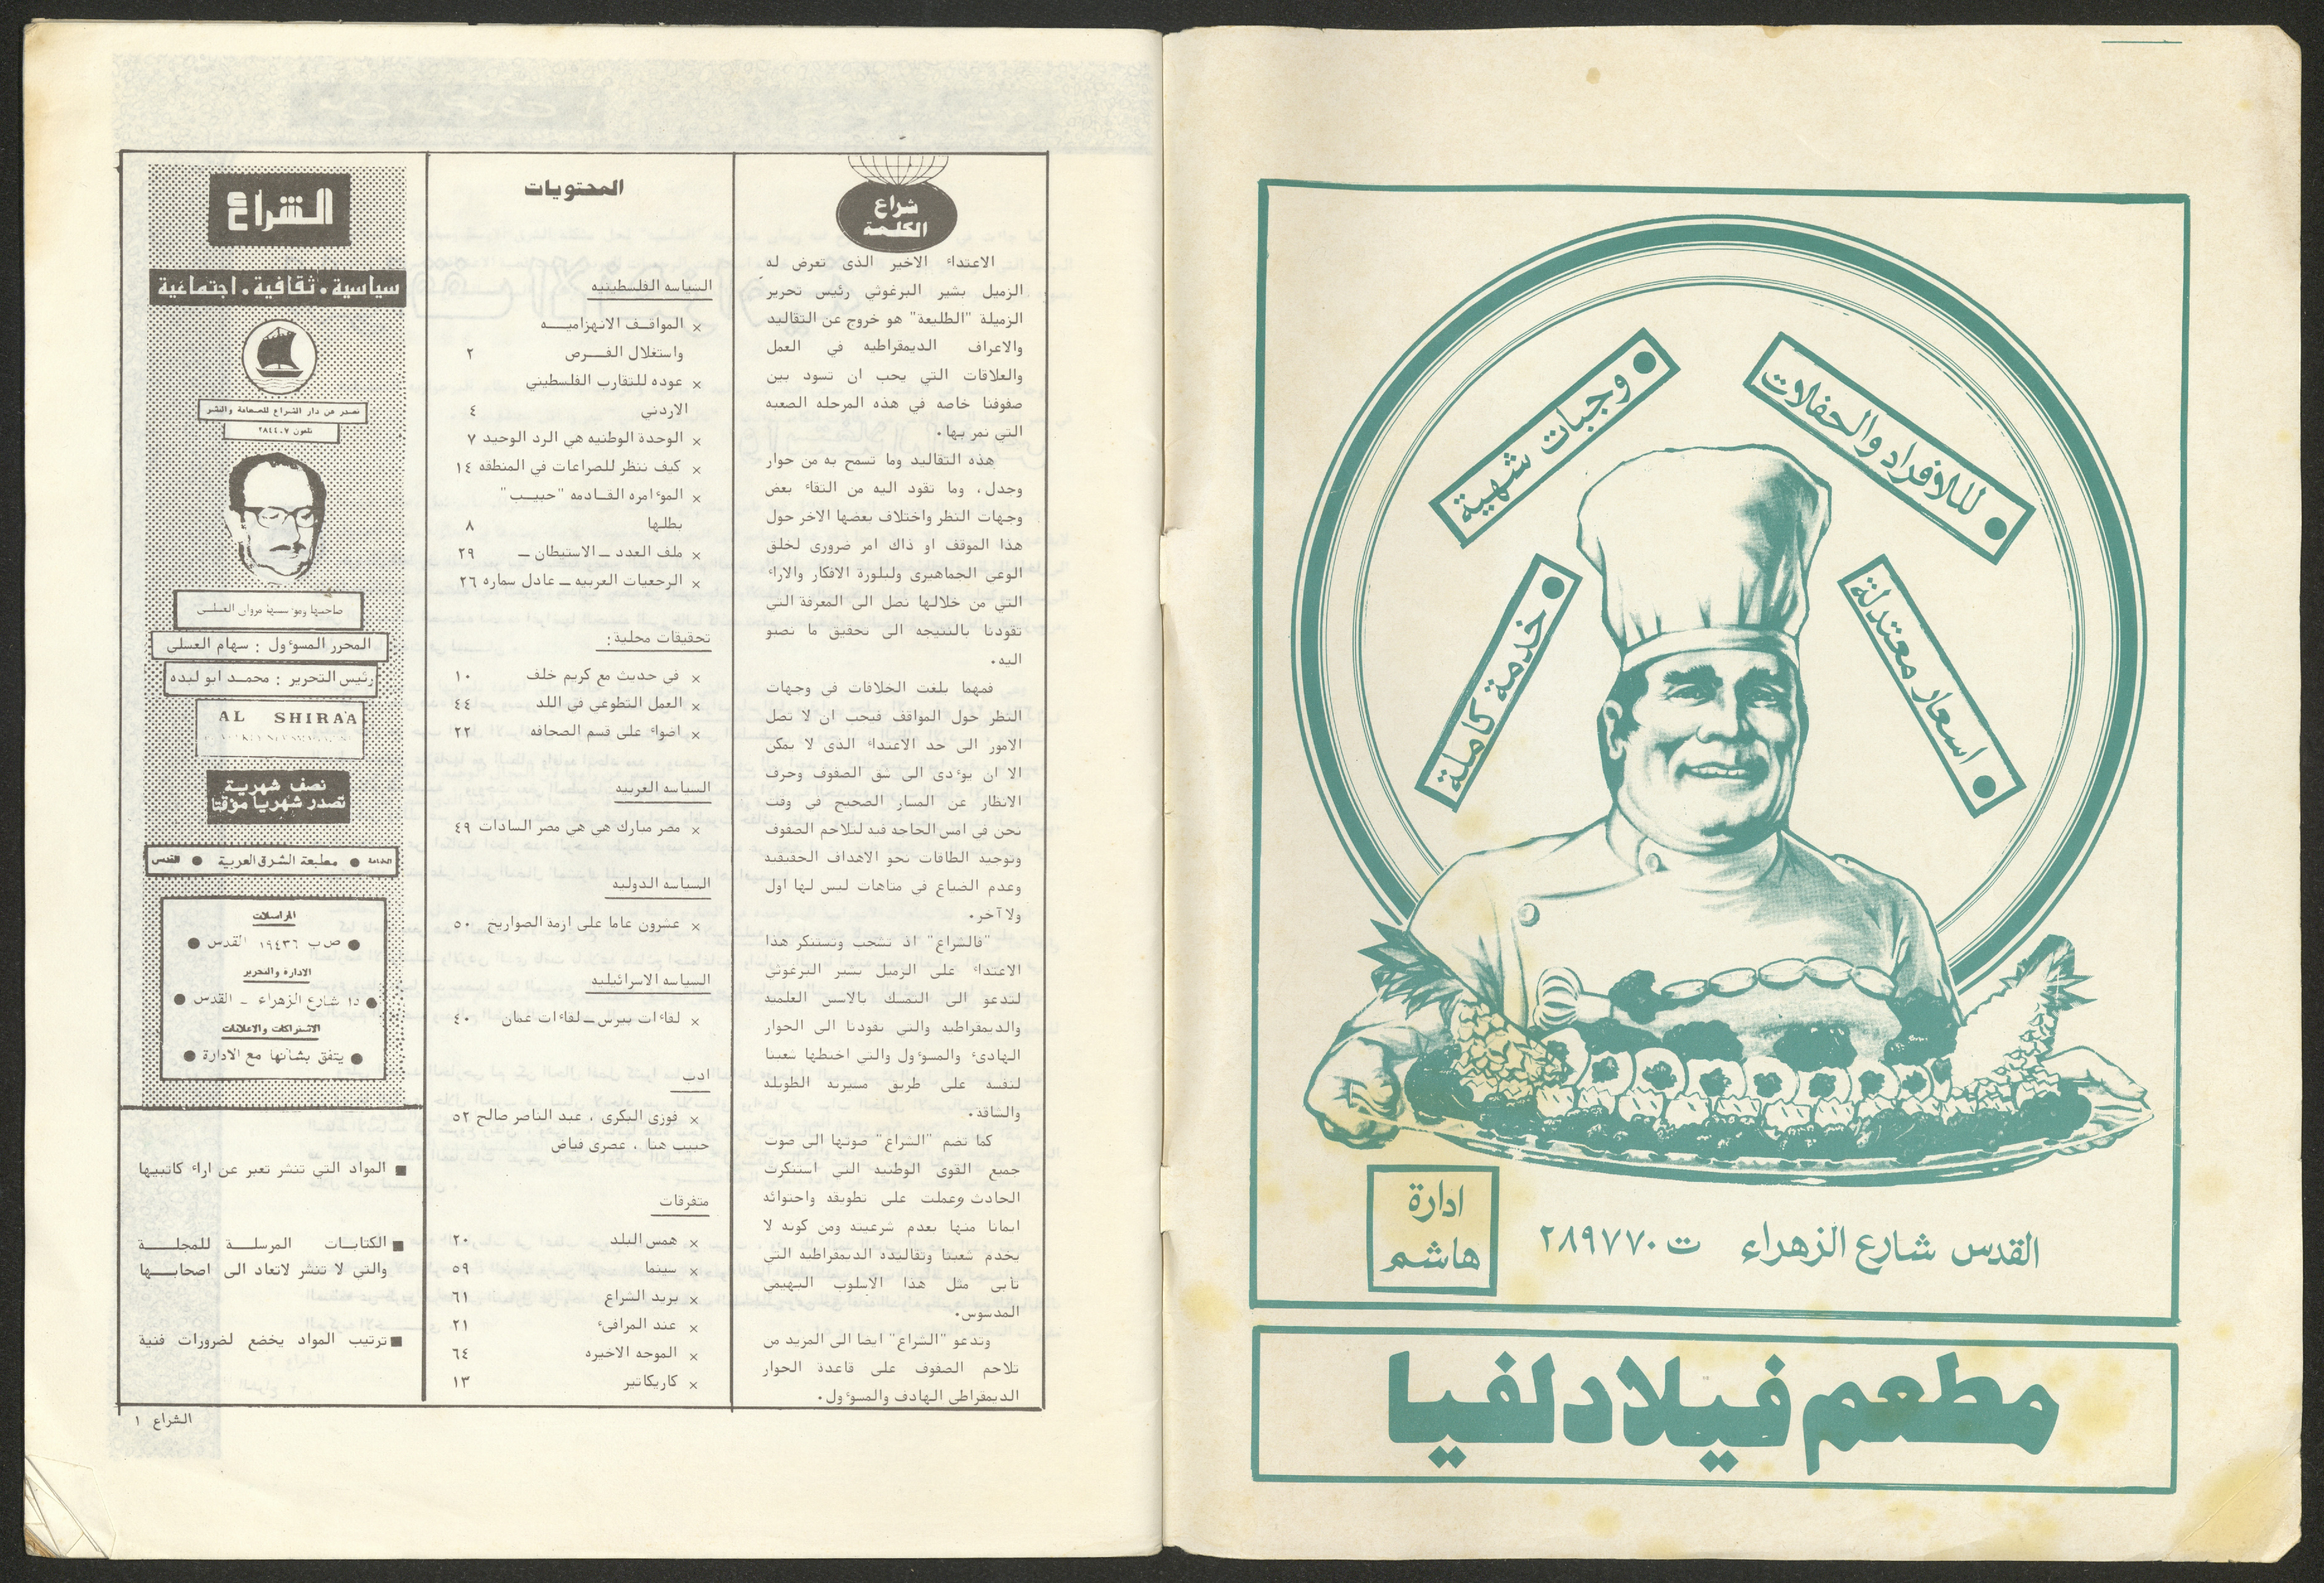 وجبات شهية
للافراد والحفلات
خدمة كاملة
اسعار معتدلة
ادارة
هاشم
القدس شارع الزهراء ت ٢٨٩٧٧٠
مطعم فيلادلفيا
شراع
الكلمة
الاعتداء الاخير الذى تعرض له
الزميل بشير البرغوثي رئيس تحرير
الزميلة "الطليعة" هو خروج عن التقاليد
والاعراف الديمقراطيه في العمل
والعلاقات التي يجب ان تسود بين
صفوفنا خاصه في هذه المرحله الصعبه
التي نمر بها.
هذه التقاليد وما تسمح به من حوار
وجدل، وما تقود اليه من التقاء بعض
وجهات النظر واختلاف بعضها الاخر حول
هذا الموقف او ذاك امر ضرورى لخلق
الوعي الجماهيرى ولبلورة الافكار والاراء
التي من خلالها نصل الى المعرفة التي
تقودنا بالنتيجه الى تحقيق ما نصبو
اليه.
فمهما بلغت الخلافات في وجهات
النظر حول المواقف فيجب ان لا تصل
الامور الى حد الاعتداء الذى لا يمكن
الا ان يوءدى الى شق الصفوف وحرف
الانظار عن المسار الصحيح في وقت
نحن في امس الحاجة فيه لتلاحم الصفوف
وتوحيد الطاقات نحو الاهداف الحقيقيه
وعدم الضياع في متاهات ليس لها اول
ولا آخر.
"فالشراع" اذ تشجب وتستنكر هذا
الاعتداء على الزميل بشير البرغوثي
لتدعو الى التمسك بالاسس العلميه
والديمقراطيه والتي تقودنا الى الحوار
الهادىء والمسوءول والتي اختطها شعبنا
لنفسه على طريق مسيرته الطويله
والشاقه.
كما تضم "الشراع" صوتها الى صوت
جميع القوى الوطنيه التي استنكرت
الحادث وعملت على تطويقه واحتوائه
ايمانا منها بعدم شرعيته ومن كونه لا
يخدم شعبنا وتقاليده الديمقراطيه التي
تأبى مثل هذا الاسلوب البهيمي
المدسوس.
وتدعو "الشراع" ايضا الى المزيد من
تلاحم الصفوف على قاعدة الحوار
الديمقراطي الهادف والمسوءول.
المحتويات
السياسه الفلسطينيه
× المواقف الانهزاميه
واستغلال الفرص ٢
× عوده للتقارب الفلسطيني
الاردني ٤
× الوحدة الوطنيه هي الرد الوحيد ٧
× كيف ننظر للصراعات في المنطقه ١٤
× الموءامره القادمه "حبيب"
بطلها ٨
× ملف العدد ـ الاستيطان ـ ٢٩
× الرجعيات العربيه ـ عادل سماره ٢٦
تحقيقات محلية:
× في حديث مع كريم خلف ١٠
× العمل التطوعي في اللد ٤٤
× اضواء على قسم الصحافه ٢٢
السياسه العربيه
× مصر مبارك هي هي مصر السادات ٤٩
السياسه الدوليه
× عشرون عاما على ازمة الصواريخ ٥٠
السياسه الاسرائيليه
× لقاءات بيرس ـ لقاءات عمان ٤٠
ادب
× فوزى البكرى، عبد الناصر صالح ٥٢
حبيب هنا، عصرى فياض
متفرقات
× همس البلد ٢٠
× سينما ٥٩
× بريد الشراع ٦١
× عند المرافىء ٢١
× الموجه الاخيره ٦٤
× كاريكاتير ١٣
الشراع
سياسية. ثقافية. اجتماعية
تصدر عن دار الشراع للصحافة والنشر
تلفون ٢٨٤٤٠٧
صاحبها وموءسسها مروان العسلي
المحرر المسوءول : سهام العسلي
رئيس التحرير : محمد ابو لبده
AL SHIRAA
نصف شهرية
تصدر شهريا مؤقتا
الطباعة ● مطبعة الشرق العربية ● القدس
المراسلات
● ص ب ١٩٤٣٦ القدس ●
الادارة والتحرير
شارع الزهراء - القدس ●
الاشتراكات والاعلانات
● يتفق بشأنها مع الادارة ●
■ المواد التي تنشر تعبر عن اراء كاتبيها
■ الكتابات المرسلة للمجلة
والتي لا تنشر لاتعاد الى اصحابها
■ ترتيب المواد يخضع لضرورات فنية
الشراع ١